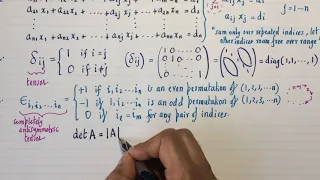 a₂₁x₁ + a₂₂x₂ + ... + a₂ₙxₙ = d₂
aₙ₁x₁ + aₙ₂x₂ + ... + aₙₙxₙ = dₙ
aᵢⱼxⱼ = dᵢ
j = 1-n
"sum only over repeated indices, let other indices roam free over range"
δᵢⱼ = { 1 if i=j
0 if i≠j
(δᵢⱼ) = = diag(1,1,...1)
tensor
εᵢ₁ᵢ₂...ᵢₙ = { +1 if i₁,i₂...iₙ is an even permutation of (1,2,3,...n)
-1 if i₁,i₂...iₙ is an odd permutation of (1,2,3,...n)
0 if iₑ=iₘ for any pair of indices.
completely
antisymmetric
tensor
det A = |A|